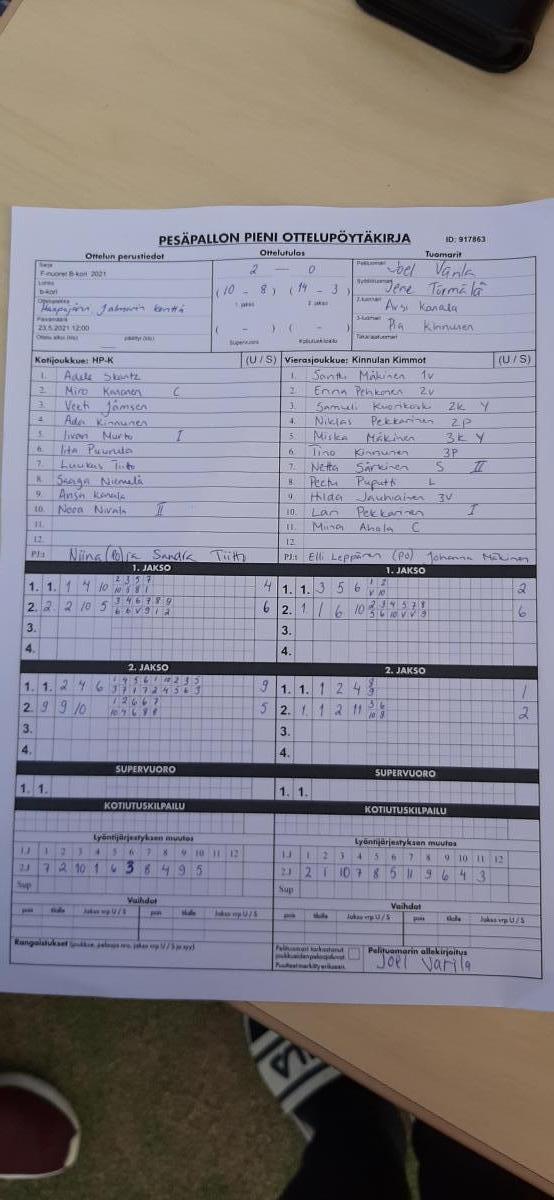 PESÄPALLON PIENI OTTELUPÖYTÄKIRJA ID: 917863
Ottelun perustiedot Ottelutulos Tuomarit
Sarja
F-nuoret B-kori 2021
Lohko
b-kori
Ottelupaikka
Haapajärvi kenttä
Päivämäärä
23.5.2021 12:00
Ottelu alkoi (klo) päättyi (klo)
2 — 0
(10 - 8) (14 - 3)
1. jakso 2. jakso
( - ) ( - )
Supervuoro Kotiutuskilpailu
Pelituomari Joel Varila
Syöttötuomari Jere Törmälä
2-tuomari Anssi Kanala
3-tuomari Pia Kinnunen
Takarajatuomari
Kotijoukkue: HP-K (U / S) Vierasjoukkue: Kinnulan Kimmot (U / S)
1. Adele 1. Santtu Mäkinen 1v
2. Miro Kananen C 2. Enna Pehkonen 2v
3. Veeti Jämsen 3. Samuli Kuorikoski 2k Y
4. Ada Kinnunen 4. Niklas Pekkarinen 2p
5. Iivari Murto I 5. Miska Mäkinen 3k Y
6. Iita Puurula 6. Tino Kinnunen 3P
7. Luukas Tiitto 7. Netta Särkinen S II
8. Saaga Niemelä 8. Peetu Puputti L
9. Anssi Kanala 9. Hilda Jauhiainen 3V
10. Noora Nivala II 10. Lari Pekkarinen I
11. 11. Minna Ahola C
12. 12.
PJ:t Niina (po) ja Sandra Tiitto PJ:t Elli Leppänen (PO) Johanna Mäkinen
1. JAKSO 1. JAKSO
1. 1. 1 4 10 2 3 5 7 4 1. 1. 3 5 6 1 2 2
10 5 8 1 v 10
2. 2 2 10 5 3 4 6 7 8 9 6 2. 1 1 6 10 2 3 4 5 7 8 6
6 6 v 9 1 2 5 6 10 v v 9
3. 3.
4. 4.
2. JAKSO 2. JAKSO
1. 1. 2 4 6 1 4 5 6 1 10 2 3 5 9 1. 1. 1 2 4 8 1
3 7 1 7 2 4 5 6 3 9
2. 9 9 10 1 2 6 6 7 5 2. 1. 1 2 11 3 6 2
10 4 6 8 8 10 8
3. 3.
4. 4.
SUPERVUORO SUPERVUORO
1. 1. 1. 1.
KOTIUTUSKILPAILU KOTIUTUSKILPAILU
Lyöntijärjestyksen muutos Lyöntijärjestyksen muutos
1.J 1 2 3 4 5 6 7 8 9 10 11 12 1.J 1 2 3 4 5 6 7 8 9 10 11 12
2.J 7 2 10 1 6 3 8 4 9 5 2.J 2 1 10 7 8 5 11 9 6 4 3
Sup Sup
Vaihdot Vaihdot
pois tilalle Jakso vrp U / S pois tilalle Jakso vrp U / S pois tilalle Jakso vrp U / S pois tilalle Jakso vrp U / S
Rangaistukset (joukkue, pelaaja nro, jakso vrp U / S ja syy)
Pelituomari tarkastanut
joukkueiden pelaajaluvat
Puutteet merkitty erikseen
Pelituomarin allekirjoitus
Joel Varila